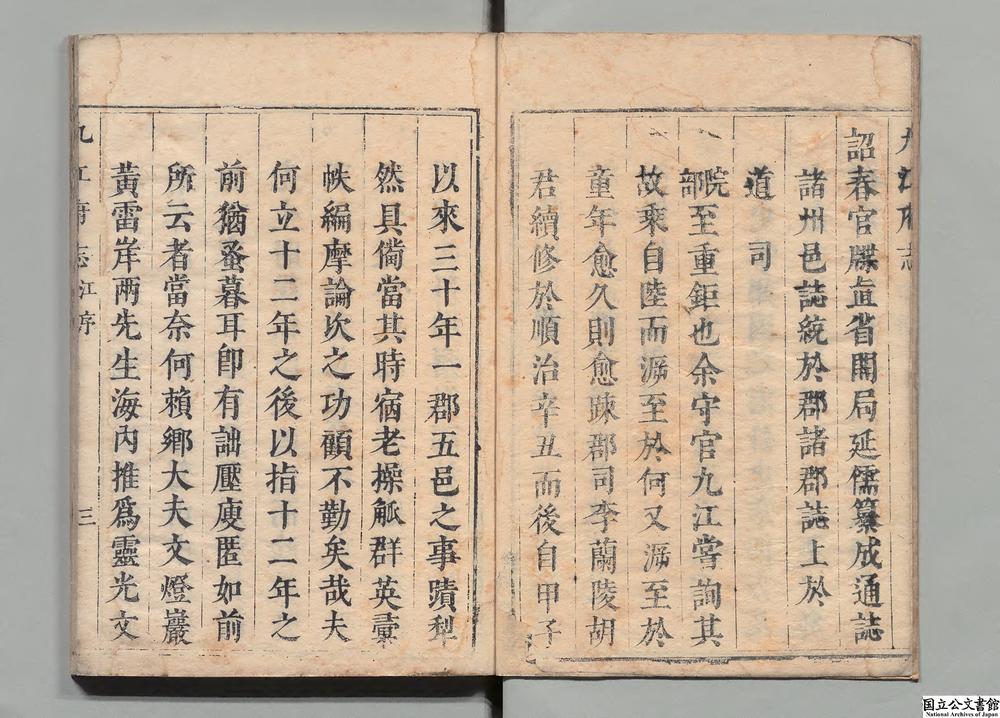 詔春官牒直省開局延儒纂成通誌
諸州邑誌統於郡諸郡誌上於
道司
院
部至重鉅也余守官九江嘗詢其
故乘自陸而溯至於何又溯至於
童年愈久則愈踈郡司李蘭陵胡
君續修於順治辛丑而後自甲子
以來三十年一郡五邑之事蹟犁
然具備當其時宿老操觚群英彚
帙編摩論次之功顧不勤矣哉夫
何立十二年之後以指十二年之
前猶蚤暮耳卽有詘壓庾匿如前
所云者當奈何賴鄉大夫文燈巖
黃雷岸兩先生海內推爲靈光文
九江府志 江序 三
国立公文書館
National Archives of Japan